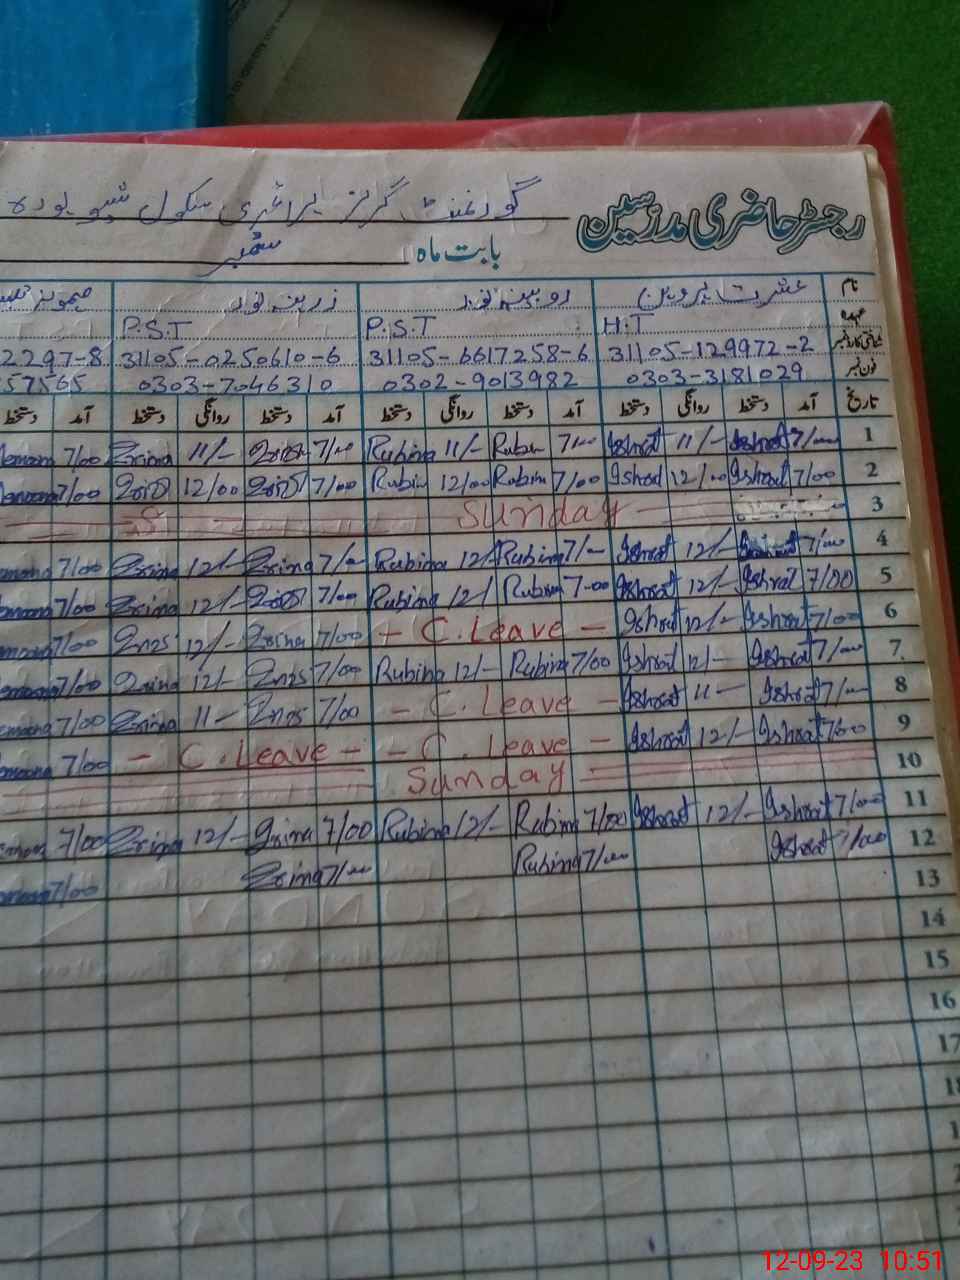 رجسٹر حاضری مدرسین گورنمنٹ گرلز پرائمری سکول
بابت ماہ ستمبر
نام عشرت پروین روبینہ نور زرینہ نور
عہدہ H.T P.S.T P.S.T
شناختی کارڈ نمبر 31105-129972-2 31105-6617258-6 31105-0250610-6 2297-8
فون نمبر 0303-3181029 0302-9013982 0303-7046310 57565
تاریخ آمد دستخط روانگی دستخط آمد دستخط روانگی دستخط آمد دستخط روانگی دستخط آمد دستخط
1 7/00 Ishrat 11/- Ishrat 7/00 Rubin 11/- Rubina 7/00 11/- Zrina 7/00
2 7/00 Ishrat 12/00 Ishrat 7/00 Rubina 12/00 Rubin 7/00 12/00 7/00
3 Sunday S
4 7/00 12/- Ishrat 7/- Rubina 12/- Rubina 7/00 Zrina 12/- Zrina 7/00
5 7/00 Ishrat 12/- Ishrat 7-00 Rubina 12/ Rubina 7/00 12/- Zrina 7/00
6 7/00 Ishrat 12/- Ishrat - C.Leave - 7/00 Zrina 12/- 7/00
7 7/00 Ishrat 12/- Ishrat 7/00 Rubina 12/- Rubina 7/00 12/- Zrina 7/00
8 7/00 Ishrat 11- Ishrat - C.Leave - 7/00 11- Zrina 7/00
9 7/00 Ishrat 12/- Ishrat - C.Leave - - C.Leave - 7/00
10 Sunday
11 7/00 Ishrat 12/- Ishrat 7/00 Rubina 12/- Rubina 7/00 Zrina 12/- Zrina 7/00
12 7/00 Ishrat 7/00 Rubina 7/00 Zrina 7/00
13
14
15
16
17
12-09-23 10:51